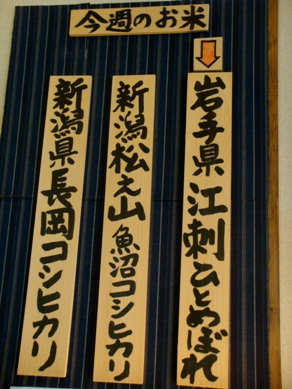 今週のお米
岩手県江刺ひとめぼれ
新潟松之山魚沼コシヒカリ
新潟県長岡コシヒカリ